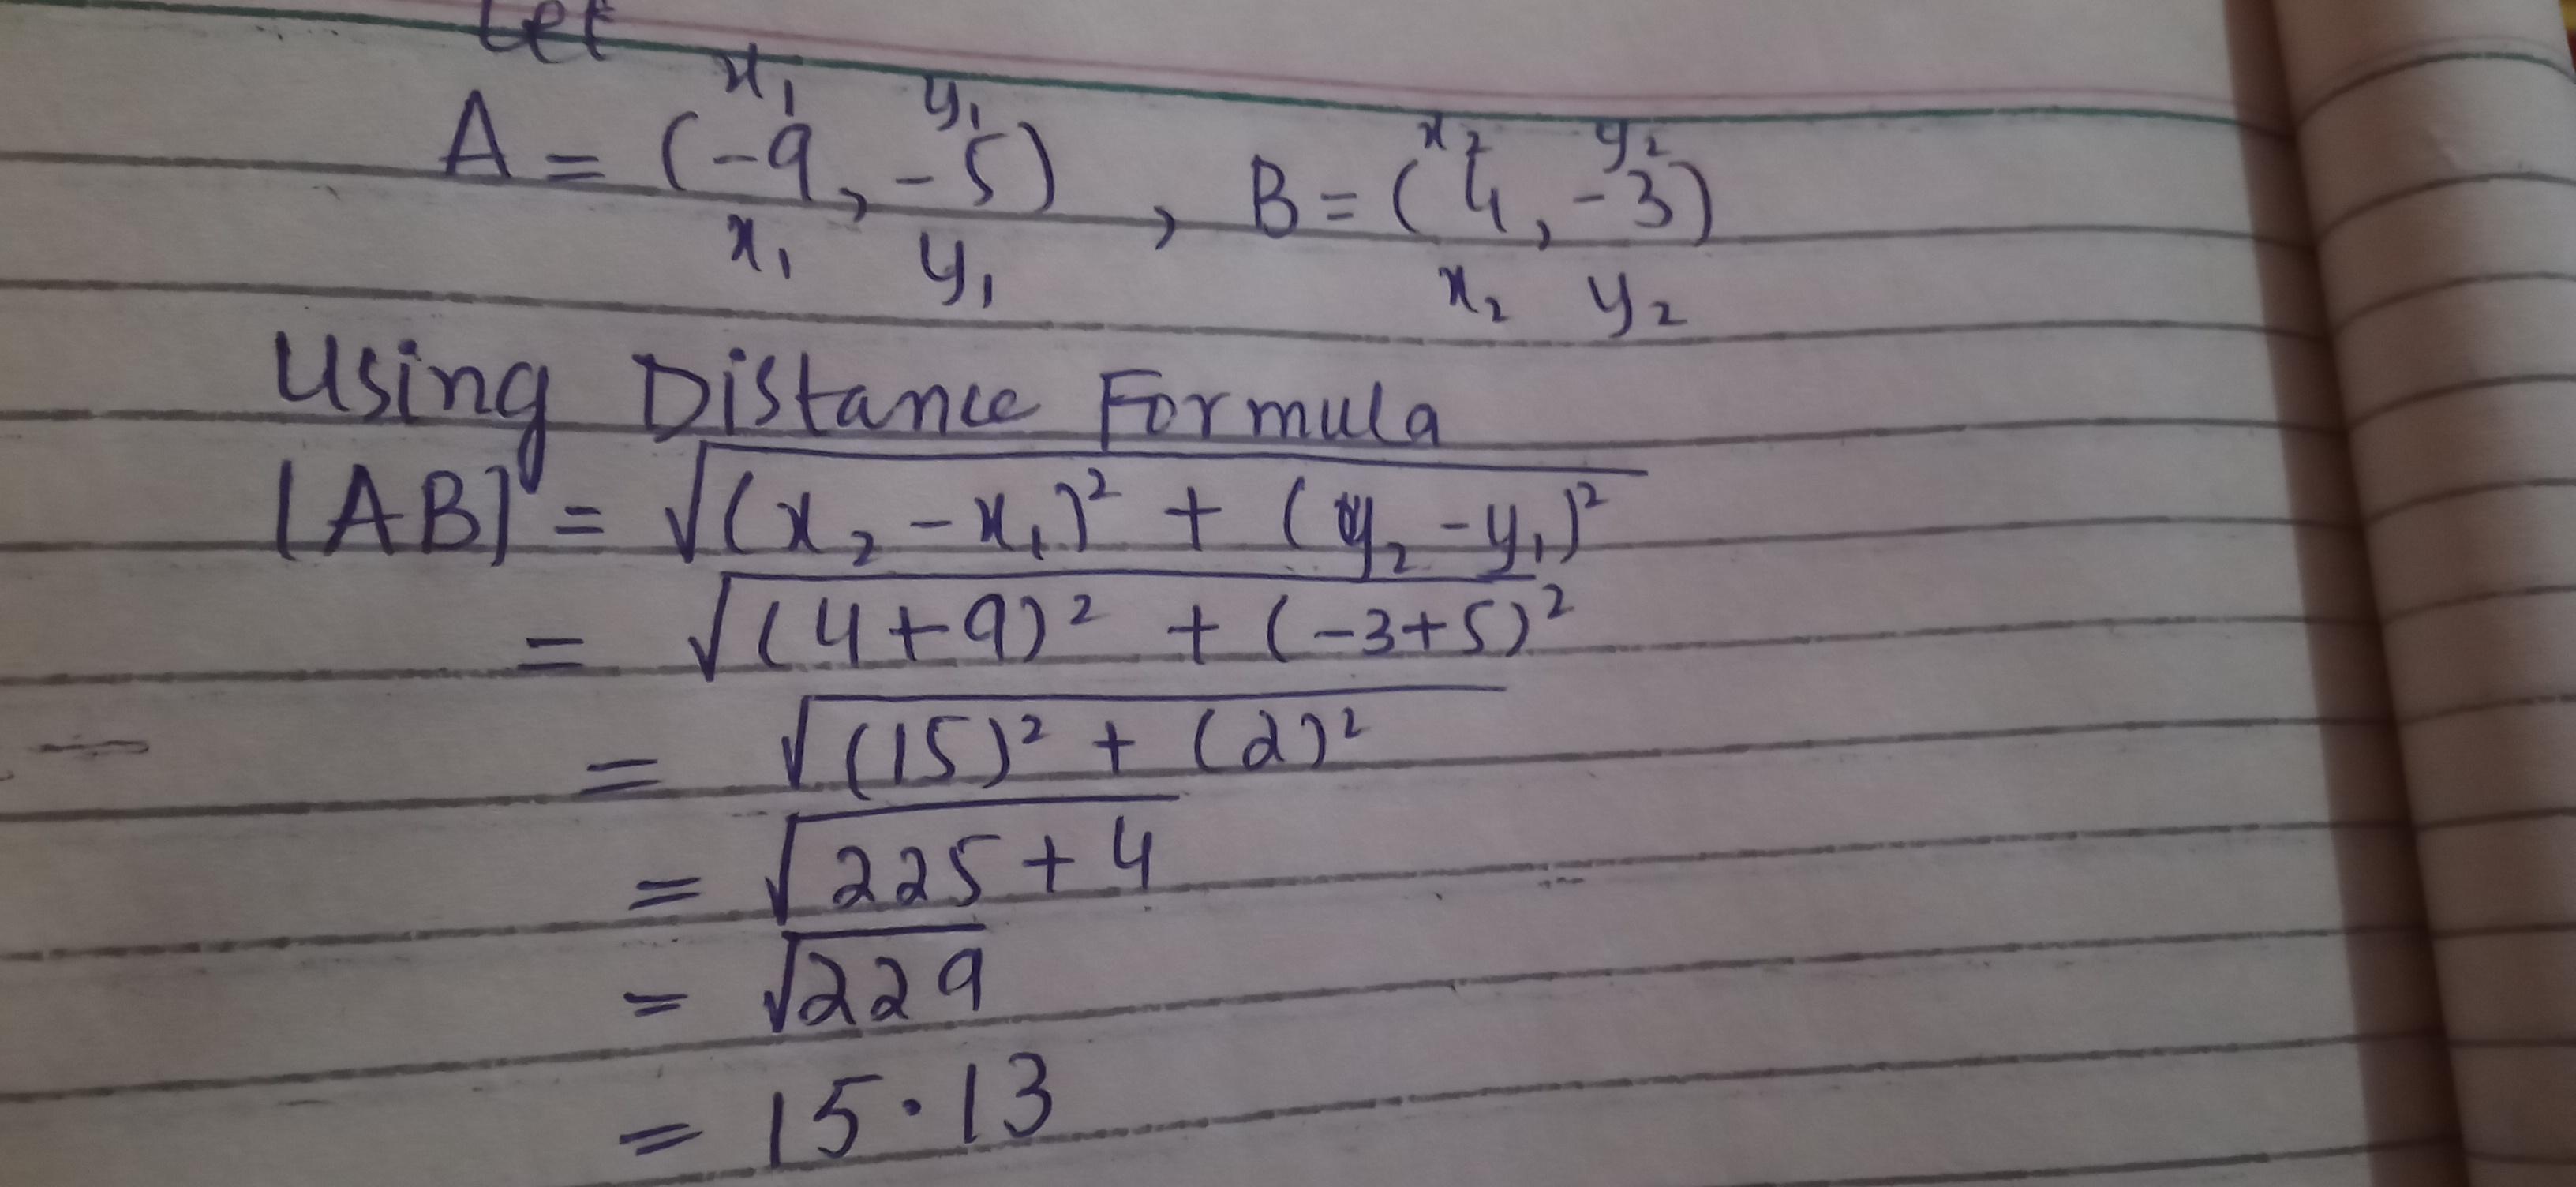 Let
x₁ y₁ x₂ y₂
A = (-9, -5) , B = (4, -3)
x₁ y₁ x₂ y₂
Using Distance Formula
|AB| = √(x₂ - x₁)² + (y₂ - y₁)²
= √(4+9)² + (-3+5)²
= √(15)² + (2)²
= √225 + 4
= √229
= 15.13